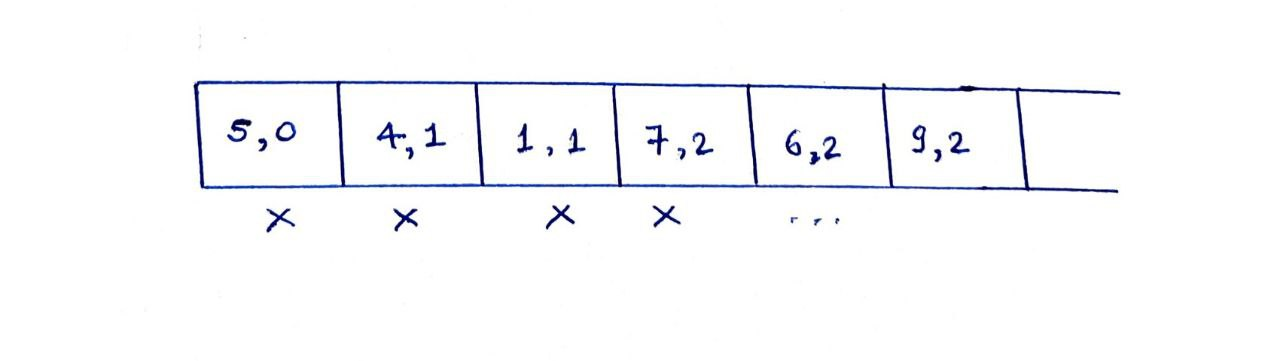 5,0 4,1 1,1 7,2 6,2 9,2
× × × × ...